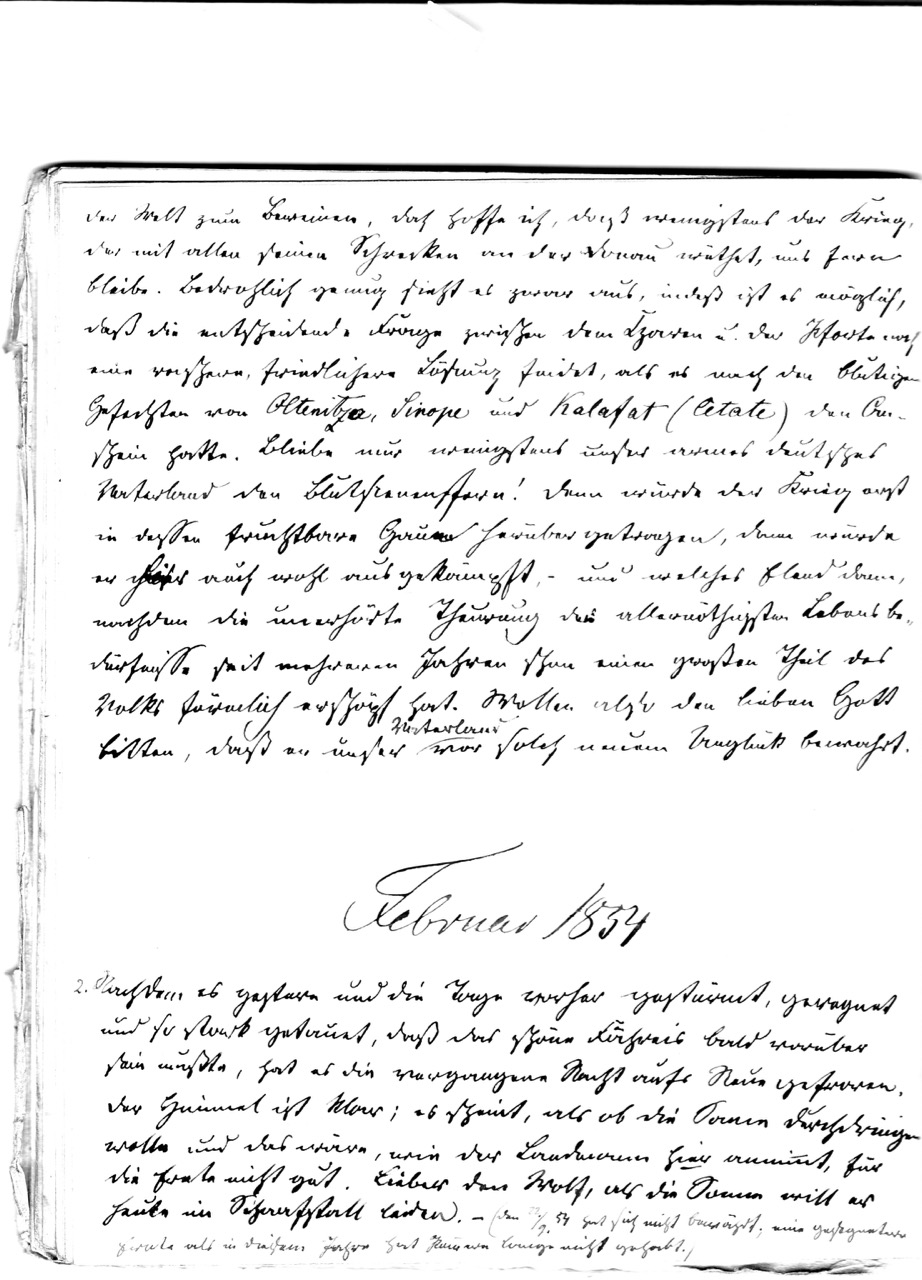 der Welt zum Beweinen, doch hoffe ich, daß wenigstens der Krieg,
der mit allen seinen Schrecken an der Donau wüthet, uns fern
bleibe. Bedrohlich genug sieht es zwar aus, indeß ist es möglich,
daß die entscheidende Frage zwischen dem Tzaren u. der Pforte noch
eine raschere, friedlichere Lösung findet, als es nach den blutigen
Gefechten von Oltenitza, Sinope und Kalafat (Cetate) den An-
schein hatte. Bliebe nur wenigstens unser armes deutsches
Vaterland den Blutscenen fern! Denn würde der Krieg erst
in dessen fruchtbare Gauen herübergetragen, dann würde
er hier auch wohl ausgekämpft, - und welches Elend dann,
nachdem die unerhörte Theurung der allernöthigsten Lebensbe-
dürfnisse seit mehreren Jahren schon einen großen Theil des
Volks förmlich erschöpft hat. Wollen also den lieben Gott
bitten, daß er unser Vaterland vor solch neuem Unglück bewahrt.
Februar 1854
2. Nachdem es gestern und die Tage vorher gestürmt, geregnet
und so stark getauet, daß das schöne Fähreis bald vorüber
sein mußte, hat es die vergangene Nacht aufs Neue gefroren.
Der Himmel ist klar; es scheint, als ob die Sonne durchdringen
wollte und das wäre, wie der Landmann hier annimmt, für
die Ernte nicht gut. Lieber den Wolf, als die Sonne will er
heute im Schaafstall leiden. - (den /9 54 hat sich nicht bewährt; eine gesegnetere
Ernte als in diesem Jahre hat lange nicht gehabt.)